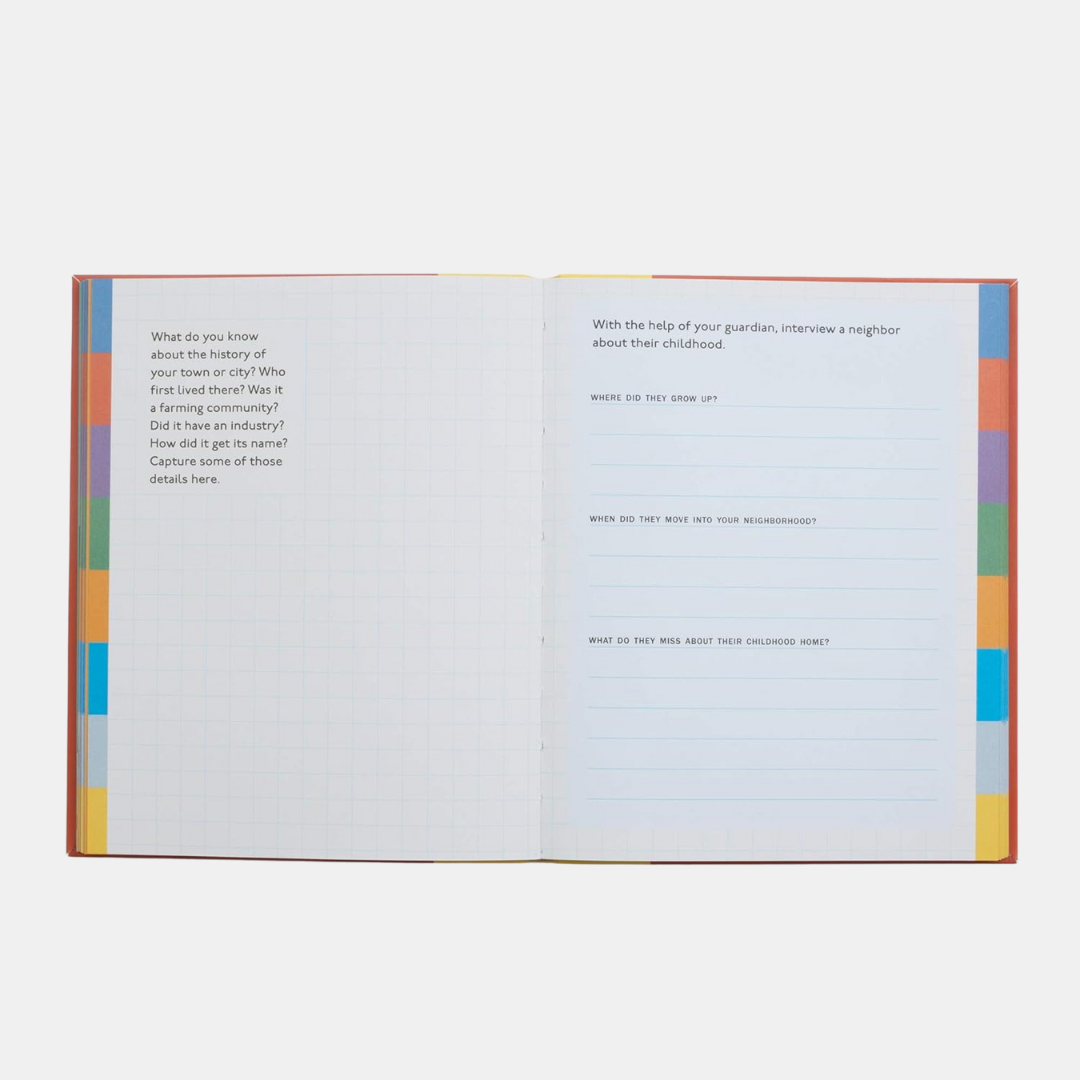 What do you know
about the history of
your town or city? Who
first lived there? Was it
a farming community?
Did it have an industry?
How did it get its name?
Capture some of those
details here.
With the help of your guardian, interview a neighbor
about their childhood.
WHERE DID THEY GROW UP?
WHEN DID THEY MOVE INTO YOUR NEIGHBORHOOD?
WHAT DO THEY MISS ABOUT THEIR CHILDHOOD HOME?